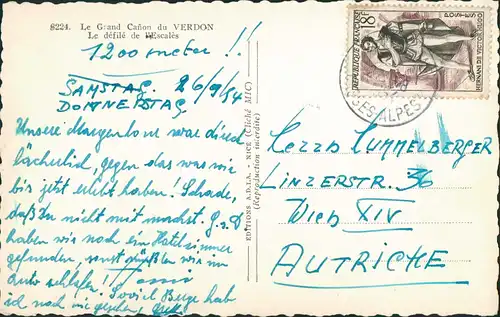 8224. Le Grand Cañon du VERDON
Le défilé de l'Escalès
1200 meter !!
SAMSTAG. 26/9/54
DONNERSTAG
Unsere Margenbone war direkt
lächerlich, gegen das was wir
bis jetzt erlebt haben! Schade,
daß Du nicht mit machst. G.s.D
haben wir noch ein Hotelzimmer
gefunden, sonst müßten wir im
Auto schlafen!
Soviel Berge hab
ich noch nie gesehen,
EDITIONS A.D.I.A. - NICE (Cliché MIC)
(Reproduction interdite)
REPUBLIQUE FRANÇAISE
18F
POSTES
HERNANI DE VICTOR HUGO
SES ALPES
Herrn HUMMELBERGER
LINZERSTR. 36
WIEN XIV
AUTRICHE